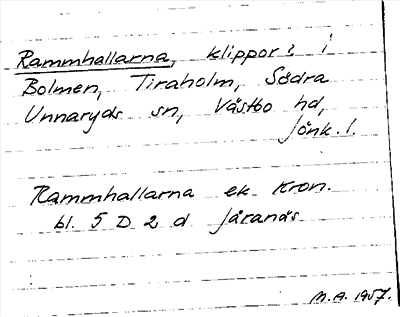 Rammhallarna, klippor i
Bolmen, Tiraholm, Södra
Unnaryds sn, Västbo hd,
Jönk. l.
Rammhallarna ek. kron.
bl. 5 D 2 d Jåranäs
M.A. 1957.